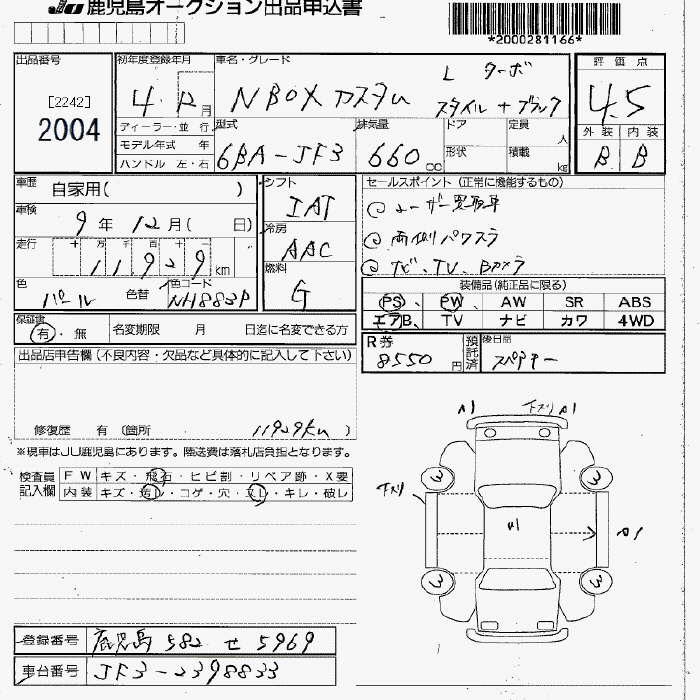 JU 鹿児島オークション出品申込書
*2000281166*
出品番号
[2242]
2004
初年度登録年月
4. 12月
車名・グレード
N BOX カスタム L ターボ
スタイル+ブラック
評価点
4.5
外装 内装
B B
ディーラー・並行
モデル年式 年
ハンドル 左・右
型式
6BA-JF3
排気量
660cc
ドア
形状
定員 人
積載 kg
車歴 自家用( )
車検
9年 12月( 日)
走行
十 万 千 百 十 一
11929km
色
パール
色替
色コード
NH883P
シフト
IAT
冷房
AAC
燃料
G
セールスポイント (正常に機能するもの)
◎ユーザー買取車
◎両側パワスラ
◎ナビ、TV、Bカメラ
装備品(純正品に限る)
PS PW AW SR ABS
エアB TV ナビ カワ 4WD
保証書
有・無
名変期限 月 日迄に名変できる方
R券
8550円
預託済
後日品
スペアキー
出品店申告欄(不良内容・欠品など具体的に記入して下さい)
修復歴 有(箇所
11929km
※現車はJU鹿児島にあります。陸送費は落札店負担となります。
検査員記入欄
FW キズ・飛石・ヒビ割・リペア跡・X要
内装 キズ・汚レ・コゲ・穴・スレ・キレ・破レ
A1 下スリ A1
3 3
下スリ
A1
A1
3 3
登録番号 鹿児島 582 せ 5969
車台番号 JF3-2398833